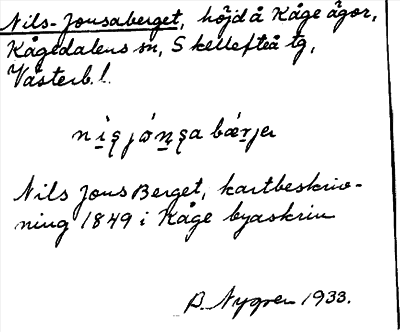 Nils-Jonsaberget, höjd å Kåge ägor,
Kågedalens sn, Skellefteå tg,
Västerb. l.
Nils Jons Berget, kartbeskriv-
ning 1849 i Kåge byaskrin
B. Nygren 1933.